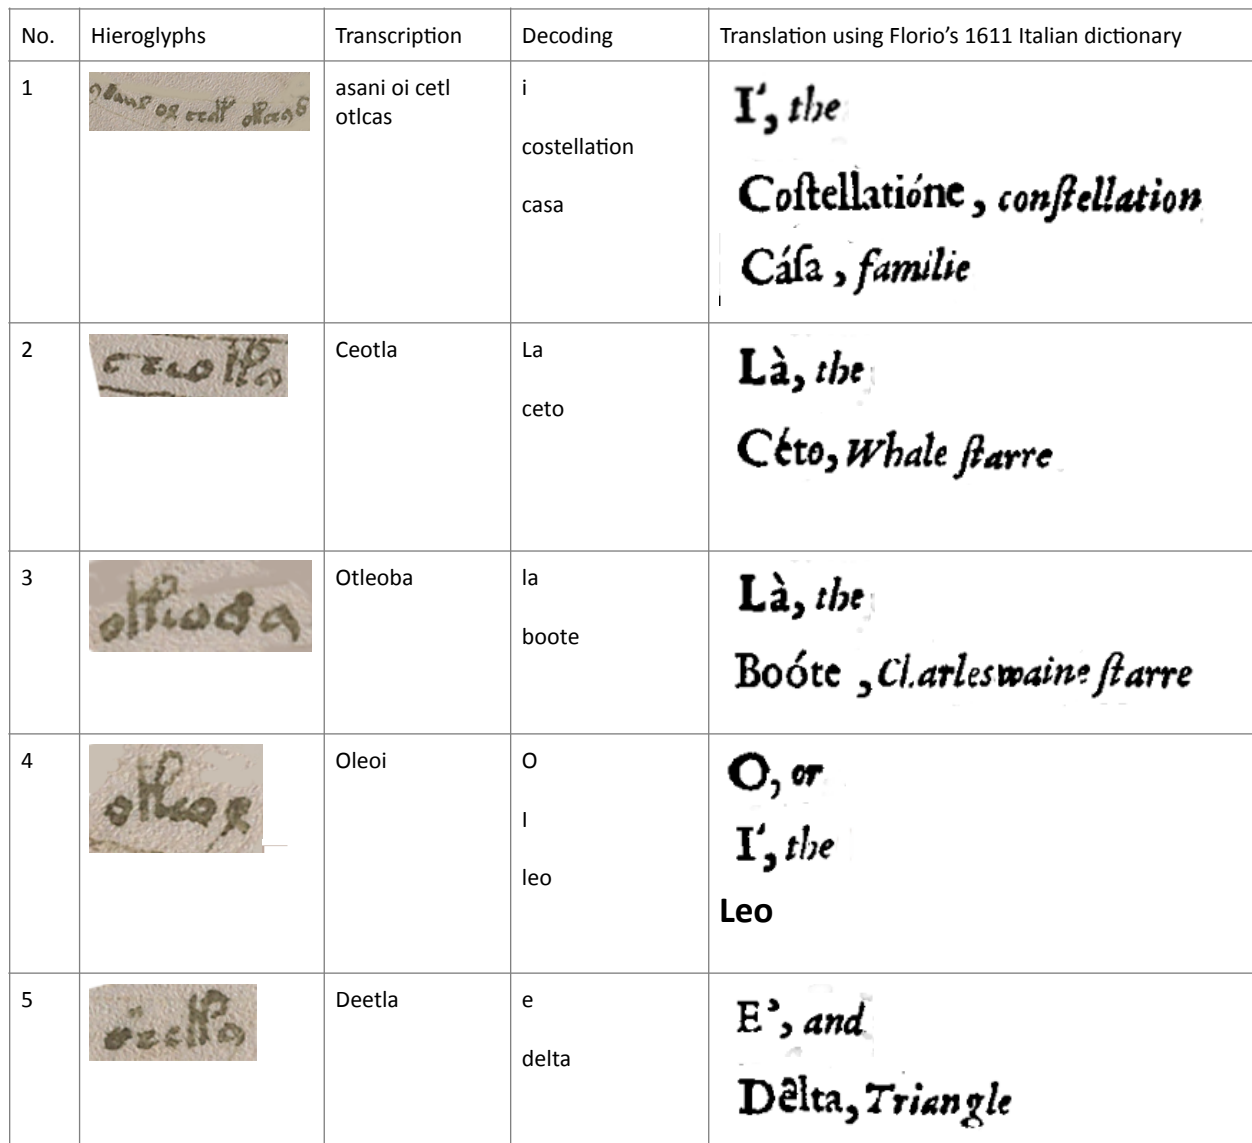 No. Hieroglyphs Transcription Decoding Translation using Florio’s 1611 Italian dictionary
1 asani oi cetl i I', the
otlcas
costellation Coſtellatióne, conſtellation
casa Cáſa, familie
2 Ceotla La Là, the
ceto Céto, Whale ſtarre
3 Otleoba la Là, the
boote Boóte, Charleswaine ſtarre
4 Oleoi O O, or
I I', the
leo Leo
5 Deetla e E', and
delta Dêlta, Triangle